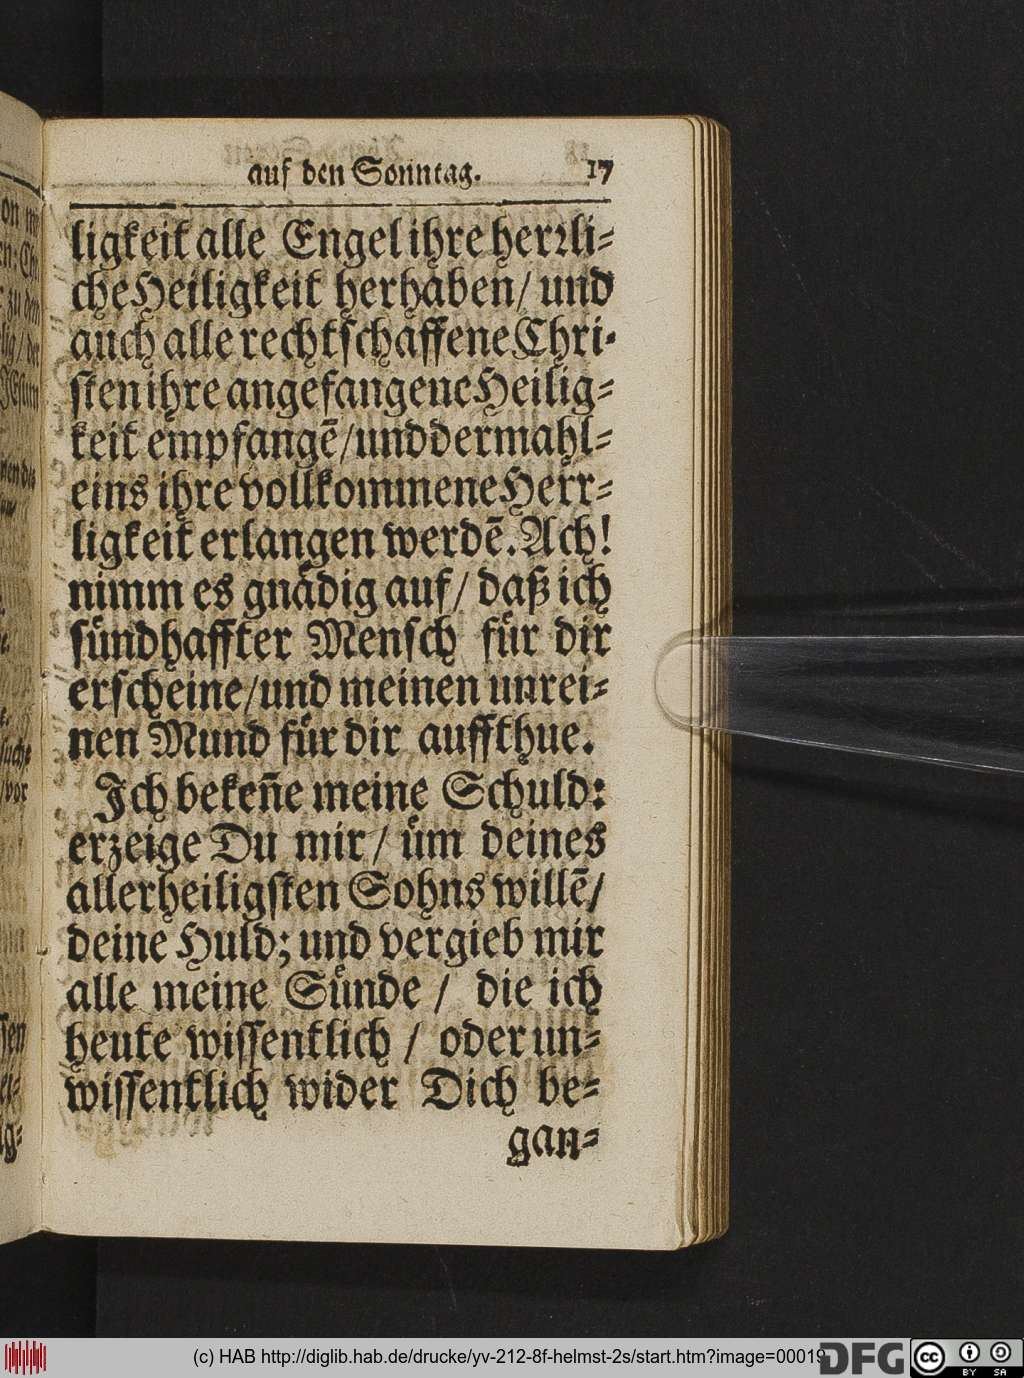 auf den Sonntag. 17
ligkeit alle Engel ihre herrli-
che Heiligkeit herhaben / und
auch alle rechtschaffene Chri-
sten ihre angefangene Heilig-
keit empfangē / und dermahl-
eins ihre vollkommene Herr-
ligkeit erlangen werdē. Ach!
nimm es gnådig auf / daß ich
sůndhaffter Mensch fůr dir
erscheine / und meinen unrei-
nen Mund fůr dir auffthue.
Ich bekeñe meine Schuld:
erzeige Du mir / ům deines
allerheiligsten Sohns willē /
deine Huld; und vergieb mir
alle meine Sůnde / die ich
heute wissentlich / oder un-
wissentlich wider Dich be-
gan-
(c) HAB http://diglib.hab.de/drucke/yv-212-8f-helmst-2s/start.htm?image=00019
DFG
cc BY SA